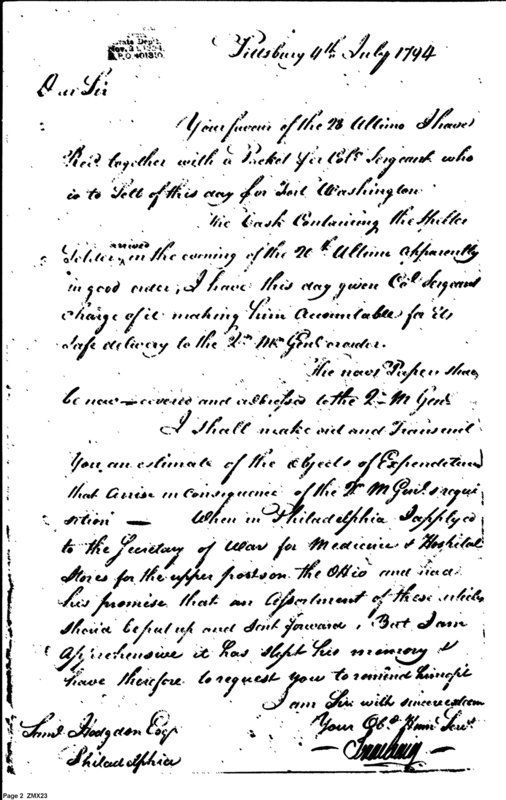 State Dept.
Pittsburg 4th July 1794
Dear Sir
Your favour of the 28 Ultimo I have
Recd together with a Packet for Colo Sergeant who
is to Sett of this day for Fort Washington
The Cask Containing the
arrived
in the evening of the 20th Ultimo apparently
in good order, I have this day given Colo Sergeant
Charge of it making him accountable for its
Safe delivery to the Q M Genl or order.
The Paper shall
be now covered and addressed to the Q M Genl
I shall make out and Transmit
You an estimate of the objects of Expenditure
that arrise in consequence of the Q M Genl's requi
sition — When in Philadelphia I applyed
to the Secretary of War for Medicine & Hospital
Stores for the upper posts on the Ohio and had
his promise that an assortment of these articles
should be put up and Sent forward, But I am
apprehensive it has slept his memory &
have therefore to request you to remind him of it
I am Sir with sincere esteem
Your Obt Humb Servt
Saml Hodgdon Esqr
Philadelphia
Page 2 ZMX23